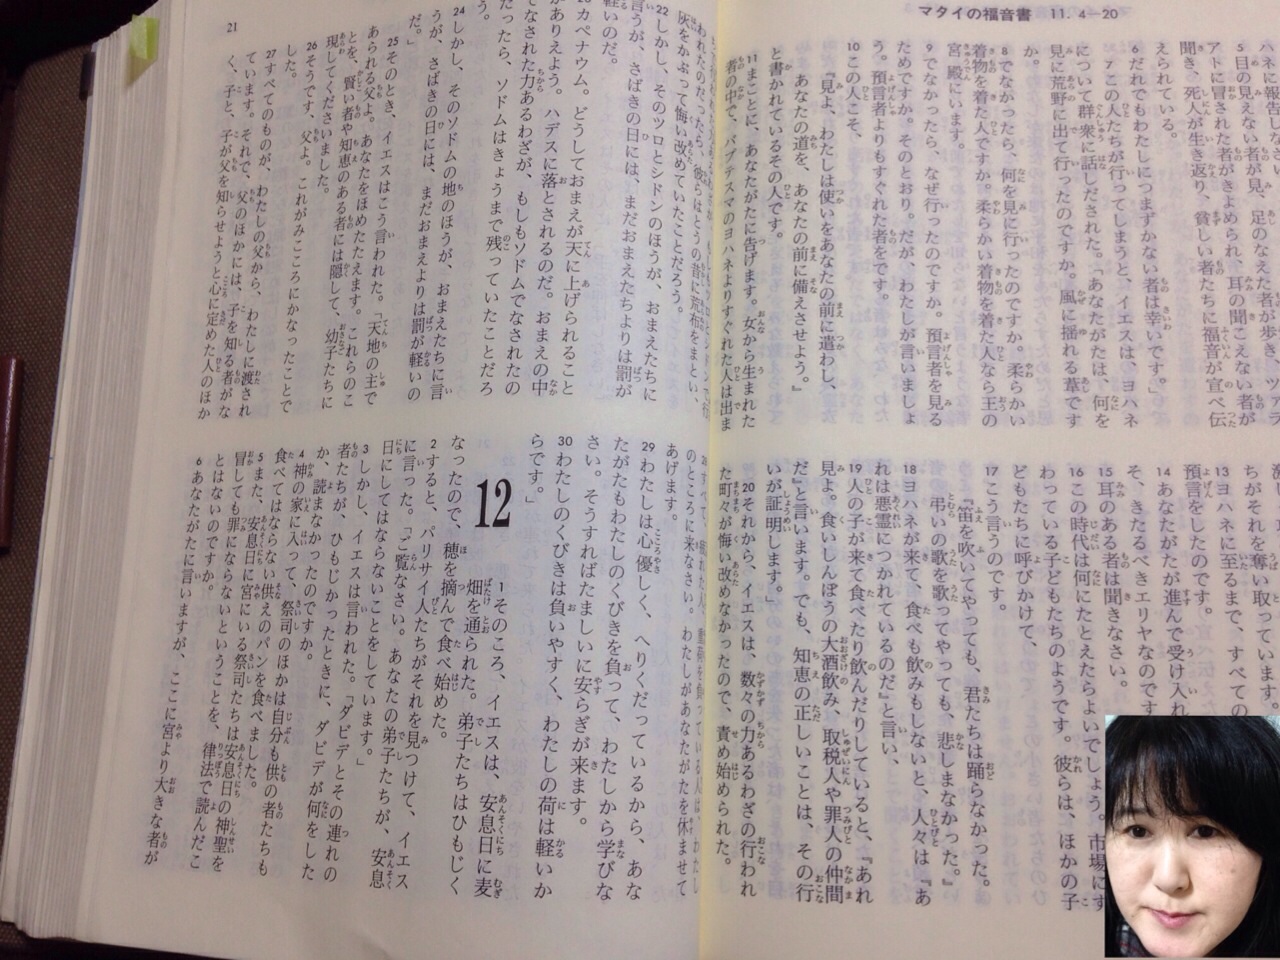 マタイの福音書 11. 4—20
5目の見えない者が見、足のなえた者が歩き、ツァラ
アトに冒された者がきよめられ、耳の聞こえない者が
聞き、死人が生き返り、貧しい者たちに福音が宣べ伝
えられている。
6だれでもわたしにつまずかない者は幸いです。」
7この人たちが行ってしまうと、イエスは、ヨハネ
について群衆に話しだされた。「あなたがたは、何を
見に荒野に出て行ったのですか。風に揺れる葦です
か。
8でなかったら、何を見に行ったのですか。柔らかい
着物を着た人ですか。柔らかい着物を着た人なら王の
宮殿にいます。
9でなかったら、なぜ行ったのですか。預言者を見る
ためですか。そのとおり。だが、わたしが言いましょ
う。預言者よりもすぐれた者をです。
10この人こそ、
『見よ、わたしは使いをあなたの前に遣わし、
あなたの道を、あなたの前に備えさせよう。』
と書かれているその人です。
11まことに、あなたがたに告げます。女から生まれた
者の中で、バプテスマのヨハネよりすぐれた人は出ま
ちがそれを奪い取っています。
13ヨハネに至るまで、すべての
預言をしたのです。
14あなたがたが進んで受け入れ
そ、きたるべきエリヤなのです
15耳のある者は聞きなさい。
16この時代は何にたとえたらよいでしょう。市場にす
わっている子どもたちのようです。彼らは、ほかの子
どもたちに呼びかけて、
17こう言うのです。
『笛を吹いてやっても、君たちは踊らなかった。
弔いの歌を歌ってやっても、悲しまなかった。』
18ヨハネが来て、食べも飲みもしないと、人々は『あ
れは悪霊につかれているのだ』と言い、
19人の子が来て食べたり飲んだりしていると、『あれ
見よ。食いしんぼうの大酒飲み、取税人や罪人の仲間
だ』と言います。でも、知恵の正しいことは、その行
いが証明します。」
20それから、イエスは、数々の力あるわざの行われ
た町々が悔い改めなかったので、責め始められた。
21
灰をかぶって悔い改めていたことだろう。
22しかし、そのツロとシドンのほうが、おまえたちに
言うが、さばきの日には、まだおまえたちよりは罰が
軽いのだ。
23カペナウム。どうしておまえが天に上げられること
がありえよう。ハデスに落とされるのだ。おまえの中
でなされた力あるわざが、もしもソドムでなされたの
だったら、ソドムはきょうまで残っていたことだろ
う。
24しかし、そのソドムの地のほうが、おまえたちに言
うが、さばきの日には、まだおまえよりは罰が軽いの
だ。」
25そのとき、イエスはこう言われた。「天地の主で
あられる父よ。あなたをほめたたえます。これらのこ
とを、賢い者や知恵のある者には隠して、幼子たちに
現してくださいました。
26そうです、父よ。これがみこころにかなったことで
した。
27すべてのものが、わたしの父から、わたしに渡され
ています。それで、父のほかには、子を知る者がな
く、子と、子が父を知らせようと心に定めた人のほか
のところに来なさい。わたしがあなたがたを休ませて
あげます。
29わたしは心優しく、へりくだっているから、あな
たがたもわたしのくびきを負って、わたしから学びな
さい。そうすればたましいに安らぎが来ます。
30わたしのくびきは負いやすく、わたしの荷は軽いか
らです。」
12
1そのころ、イエスは、安息日に麦
畑を通られた。弟子たちはひもじく
なったので、穂を摘んで食べ始めた。
2すると、パリサイ人たちがそれを見つけて、イエス
に言った。「ご覧なさい。あなたの弟子たちが、安息
日にしてはならないことをしています。」
3しかし、イエスは言われた。「ダビデとその連れの
者たちが、ひもじかったときに、ダビデが何をした
か、読まなかったのですか。
4神の家に入って、祭司のほかは自分も供の者たちも
食べてはならない供えのパンを食べました。
5また、安息日に宮にいる祭司たちは安息日の神聖を
冒しても罪にならないということを、律法で読んだこ
とはないのですか。
6あなたがたに言いますが、ここに宮より大きな者が